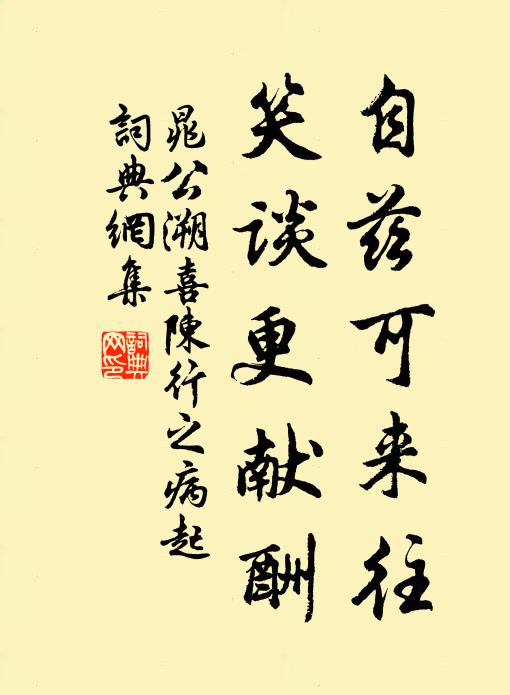 自兹可来往
笑谈更献酬
晁公溯喜陳行之病起
詞典網集
詞典
网印